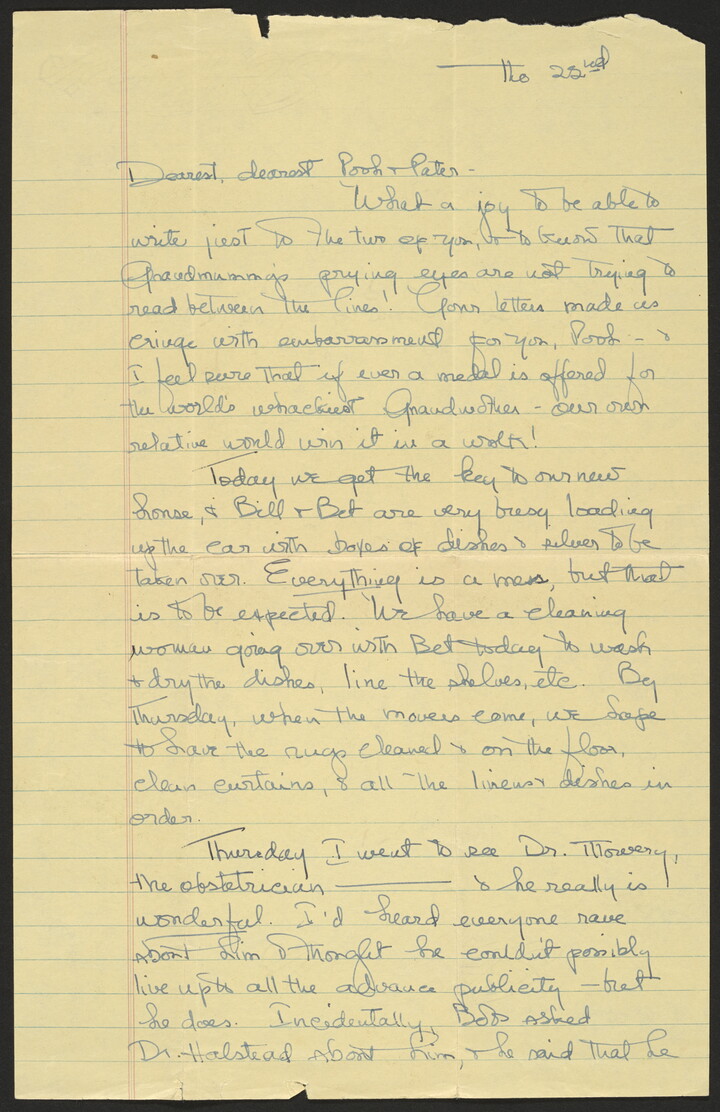 — The 22nd
Dearest, dearest Pooh & Pater -
What a joy to be able to
write just to the two of you, & to know that
Grandmummy's prying eyes are not trying to
read between the lines! Your letters made us
cringe with embarrassment for you, Pooh - &
I feel sure that if ever a medal is offered for
the world's whackiest Grandmother - our own
relative would win it in a walk!
Today we get the key to our new
house, & Bill & Bet are very busy loading
up the car with boxes of dishes & silver to be
taken over. Everything is a mess, but that
is to be expected. We have a cleaning
woman going over with Bet today to wash
& dry the dishes, line the shelves, etc. By
Thursday, when the movers come, we hope
to have the rugs cleaned & on the floor,
clean curtains, & all the linens & dishes in
order.
Thursday I went to see Dr. Mowery,
the obstetrician — & he really is
wonderful. I'd heard everyone rave
about him & thought he couldn't possibly
live up to all the advance publicity - but
he does. Incidentally, Bobs asked
Dr. Halstead about him, & he said that he